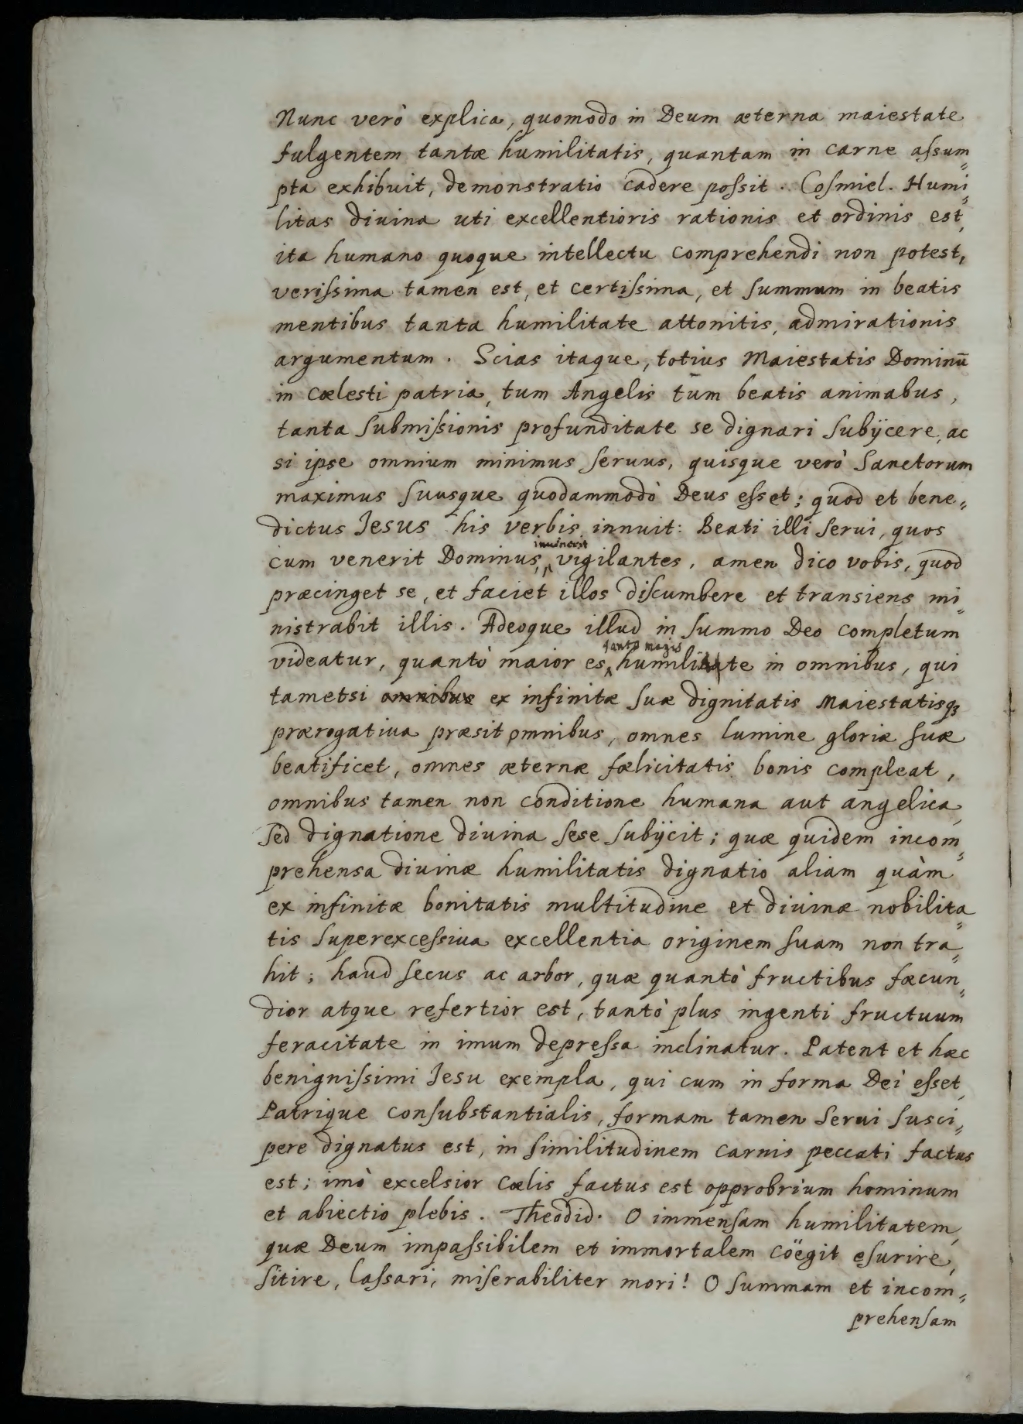 Nunc verò explica, quomodo in Deum æterna maiestate
fulgentem tantæ humilitatis, quantam in carne aſsum⸗
pta exhibuit, demonstratio cadere poſsit. Coſmiel. Humi⸗
litas diuina uti excellentioris rationis et ordinis est,
ita humano quoque intellectu comprehendi non potest,
veriſsima tamen est, et certiſsima, et ſummum in beatis
mentibus tanta humilitate attonitis, admirationis
argumentum. Scias itaque, totius Maiestatis Dominū
in cœlesti patria, tum Angelis tum beatis animabus,
tanta ſubmiſsionis profunditate se dignari ſubÿcere, ac
si ipse omnium minimus ſeruus, quisque verò ſanctorum
maximus ſuusque quodammodò Deus eſset; quod et bene⸗
dictus Jesus his verbis innuit: Beati illi ſerui, quos
inuenerit
cum venerit Dominus, vigilantes, amen dico vobis, quod
præcinget se, et faciet illos diſcumbere et transiens mi⸗
nistrabit illis. Adeoque illud in ſummo Deo completum
tanto magis
videatur, quantò maior es, humiliate in omnibus, qui
tametsi omnibus ex infinitæ ſuæ dignitatis Maiestatisq3
prærogatiua præsit omnibus, omnes lumine gloriæ ſuæ
beatificet, omnes æternæ fœlicitatis bonis compleat,
omnibus tamen non conditione humana aut angelica,
ſed dignatione diuina ſese ſubÿcit; quæ quidem incom⸗
prehensa diuinæ humilitatis dignatio aliam quàm
ex infinitæ bonitatis multitudine et diuinæ nobilita⸗
tis ſuperexceſsiua excellentia originem ſuam non tra⸗
hit; haud ſecus ac arbor, quæ quantò fructibus fæcun⸗
dior atque refertior est, tantò plus ingenti fructuum
feracitate in imum depreſsa inclinatur. Patent et hæc
benigniſsimi Jesu exempla, qui cum in forma Dei eſset,
Patrique conſubstantialis, formam tamen ſerui ſusci⸗
pere dignatus est, in ſimilitudinem carnis peccati factus
est; imò excelsior cœlis factus est opprobrium hominum
et abiectio plebis. Theodid. O immenſam humilitatem,
quæ Deum impaſsibilem et immortalem coëgit eſurire,
ſitire, laſsari, miſerabiliter mori! O ſummam et incom⸗
prehenſam